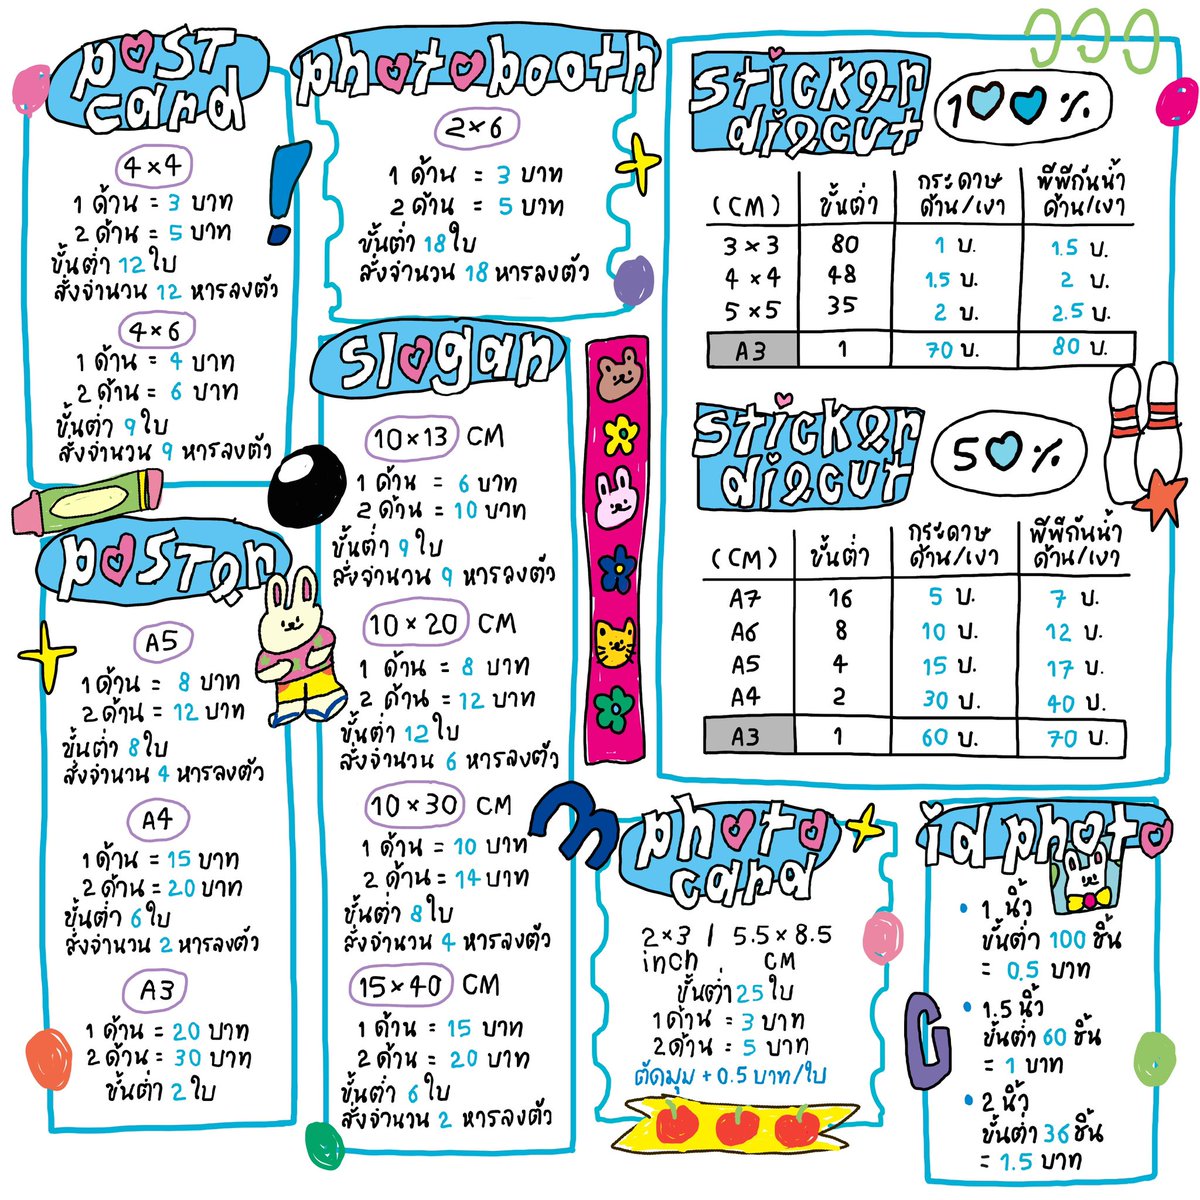 post
card
4×4
1 ด้าน = 3 บาท
2 ด้าน = 5 บาท
ขั้นต่ำ 12 ใบ
สั่งจำนวน 12 หารลงตัว
4×6
1 ด้าน = 4 บาท
2 ด้าน = 6 บาท
ขั้นต่ำ 9 ใบ
สั่งจำนวน 9 หารลงตัว
poster
A5
1 ด้าน = 8 บาท
2 ด้าน = 12 บาท
ขั้นต่ำ 8 ใบ
สั่งจำนวน 4 หารลงตัว
A4
1 ด้าน = 15 บาท
2 ด้าน = 20 บาท
ขั้นต่ำ 6 ใบ
สั่งจำนวน 2 หารลงตัว
A3
1 ด้าน = 20 บาท
2 ด้าน = 30 บาท
ขั้นต่ำ 2 ใบ
photobooth
2×6
1 ด้าน = 3 บาท
2 ด้าน = 5 บาท
ขั้นต่ำ 18 ใบ
สั่งจำนวน 18 หารลงตัว
slogan
10×13 CM
1 ด้าน = 6 บาท
2 ด้าน = 10 บาท
ขั้นต่ำ 9 ใบ
สั่งจำนวน 9 หารลงตัว
10×20 CM
1 ด้าน = 8 บาท
2 ด้าน = 12 บาท
ขั้นต่ำ 12 ใบ
สั่งจำนวน 6 หารลงตัว
10×30 CM
1 ด้าน = 10 บาท
2 ด้าน = 14 บาท
ขั้นต่ำ 8 ใบ
สั่งจำนวน 4 หารลงตัว
15×40 CM
1 ด้าน = 15 บาท
2 ด้าน = 20 บาท
ขั้นต่ำ 6 ใบ
สั่งจำนวน 2 หารลงตัว
sticker
diecut
100%
(CM) ขั้นต่ำ กระดาษ ด้าน/เงา พีพีกันน้ำ ด้าน/เงา
3×3 80 1 บ. 1.5 บ.
4×4 48 1.5 บ. 2 บ.
5×5 35 2 บ. 2.5 บ.
A3 1 70 บ. 80 บ.
sticker
diecut
50%
(CM) ขั้นต่ำ กระดาษ ด้าน/เงา พีพีกันน้ำ ด้าน/เงา
A7 16 5 บ. 7 บ.
A6 8 10 บ. 12 บ.
A5 4 15 บ. 17 บ.
A4 2 30 บ. 40 บ.
A3 1 60 บ. 70 บ.
photo
card
2×3 / 5.5×8.5
inch CM
ขั้นต่ำ 25 ใบ
1 ด้าน = 3 บาท
2 ด้าน = 5 บาท
ตัดมุม +0.5 บาท/ใบ
id photo
• 1 นิ้ว
ขั้นต่ำ 100 ชิ้น
= 0.5 บาท
• 1.5 นิ้ว
ขั้นต่ำ 60 ชิ้น
= 1 บาท
• 2 นิ้ว
ขั้นต่ำ 36 ชิ้น
= 1.5 บาท